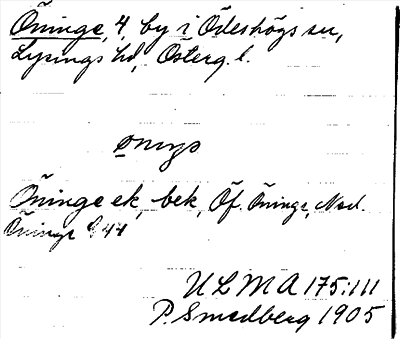 Öninge, 4, by i Ödeshögs sn,
Lysings hd, Österg. l.
Öninge ek, bek, Öf. Öninge, Ned.
Öninge 944
ULMA 175:111
P. Smedberg 1905